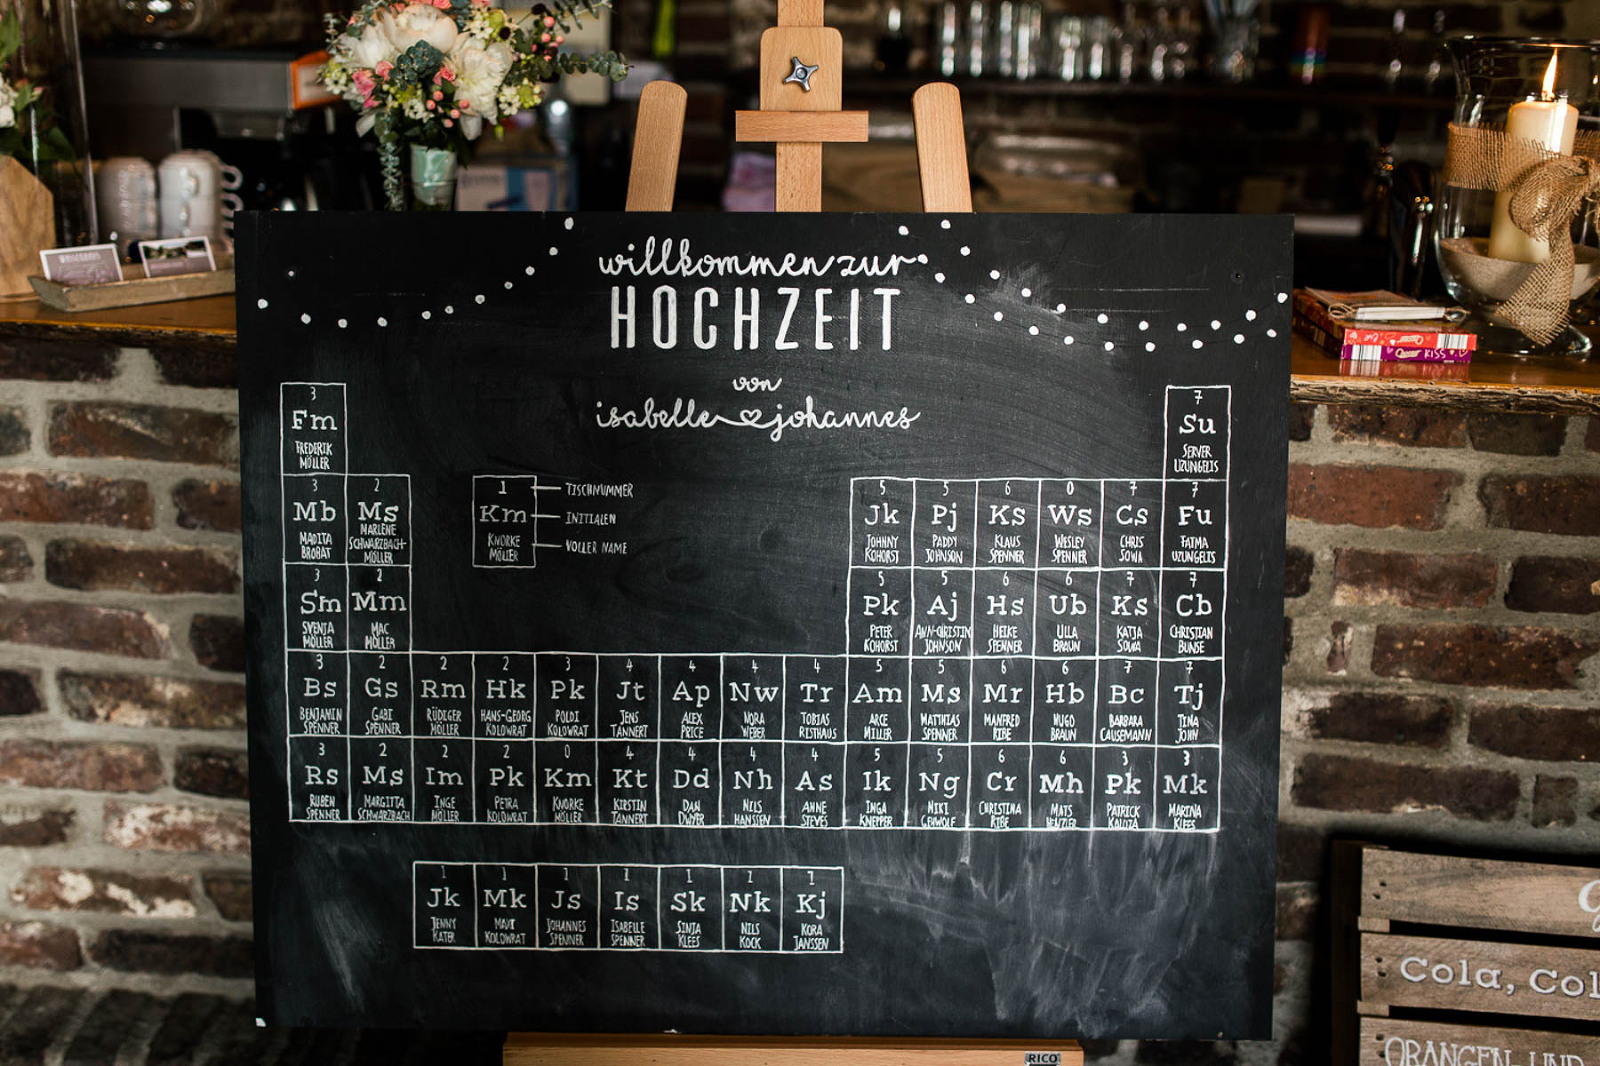 willkommen zur
HOCHZEIT
von
isabelle johannes
3
Fm
FREDERIK
MÖLLER
7
Su
SERVER
UZUNGELIS
3
Mb
MADITA
BROBAT
2
Ms
MARLENE
SCHWARZBACH-
MÖLLER
1
Km
KNORKE
MÖLLER
TISCHNUMMER
INITIALEN
VOLLER NAME
5
Jk
JOHNNY
KOHORST
5
Pj
PADDY
JOHNSON
6
Ks
KLAUS
SPENNER
0
Ws
WESLEY
SPENNER
7
Cs
CHRIS
SOWA
7
Fu
FATMA
UZUNGELIS
3
Sm
SVENJA
MÖLLER
2
Mm
MAC
MÖLLER
5
Pk
PETER
KOHORST
5
Aj
ANN-CHRISTIN
JOHNSON
6
Hs
HEIKE
SPENNER
6
Ub
ULLA
BRAUN
7
Ks
KATJA
SOWA
7
Cb
CHRISTIAN
BUNSE
3
Bs
BENJAMIN
SPENNER
2
Gs
GABI
SPENNER
2
Rm
RÜDIGER
MÖLLER
2
Hk
HANS-GEORG
KOLOWRAT
3
Pk
POLDI
KOLOWRAT
4
Jt
JENS
TANNERT
4
Ap
ALEX
PRICE
4
Nw
NORA
WEBER
4
Tr
TOBIAS
RISTHAUS
5
Am
ARCE
MILLER
5
Ms
MATTHIAS
SPENNER
6
Mr
MANFRED
RIBE
6
Hb
HUGO
BRAUN
7
Bc
BARBARA
CAUSEMANN
7
Tj
TINA
JOHN
3
Rs
RUBEN
SPENNER
2
Ms
MARGITTA
SCHWARZBACH
2
Im
INGE
MÖLLER
2
Pk
PETRA
KOLOWRAT
0
Km
KNORKE
MÖLLER
4
Kt
KIRSTIN
TANNERT
4
Dd
DAN
DWYER
4
Nh
NILS
HANSSEN
4
As
ANNE
STEVES
5
Ik
INGA
KNEPPER
5
Ng
NIKI
GEHWOLF
6
Cr
CHRISTINA
RIBE
6
Mh
MATS
HENZLER
3
Pk
PATRICK
KALUZA
3
Mk
MARINA
KLEES
1
Jk
JENNY
KATER
1
Mk
MAXI
KOLOWRAT
1
Js
JOHANNES
SPENNER
1
Is
ISABELLE
SPENNER
1
Sk
SINJA
KLEES
1
Nk
NILS
KOCK
1
Kj
KORA
JANSSEN
Cola, Col
ORANGEN- UND
RICO
KISS